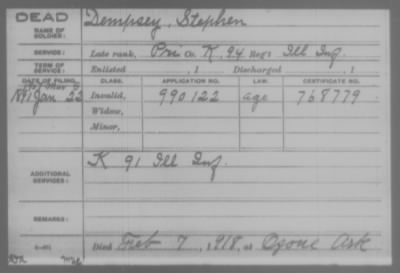 DEAD
NAME OF SOLDIER:
Dempsey, Stephen
SERVICE:
Late rank, Co. K, 94 Reg't Ill Inf.
TERM OF SERVICE:
Enlisted , 1 Discharged , 1
DATE OF FILING. CLASS. APPLICATION NO. LAW. CERTIFICATE NO.
1891 Jan 22 Invalid, 990122 age 768779
Widow,
Minor,
ADDITIONAL SERVICES:
K 91 Ill Inf.
REMARKS:
Died Feb 7, 1918, at Ozone Ark